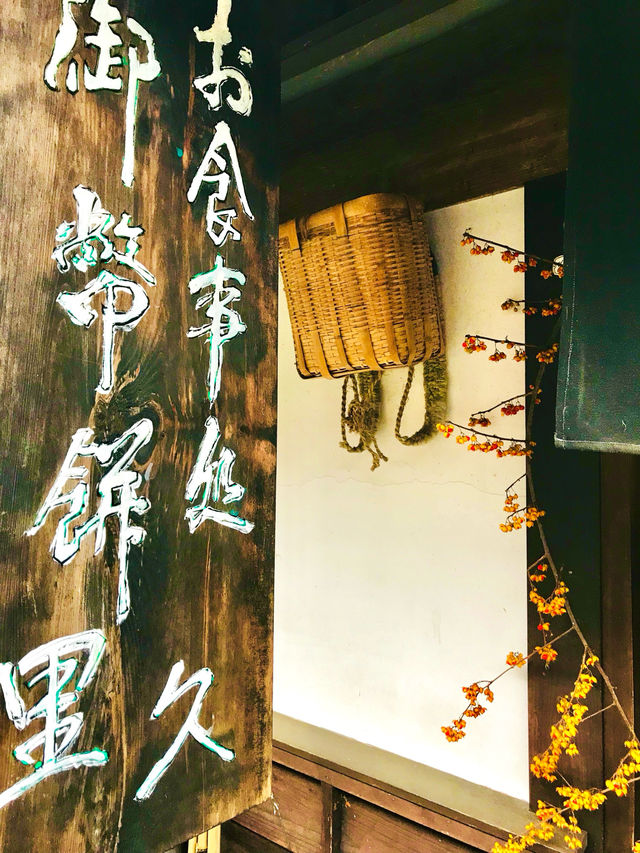 お食事処 久
御幣餅 里